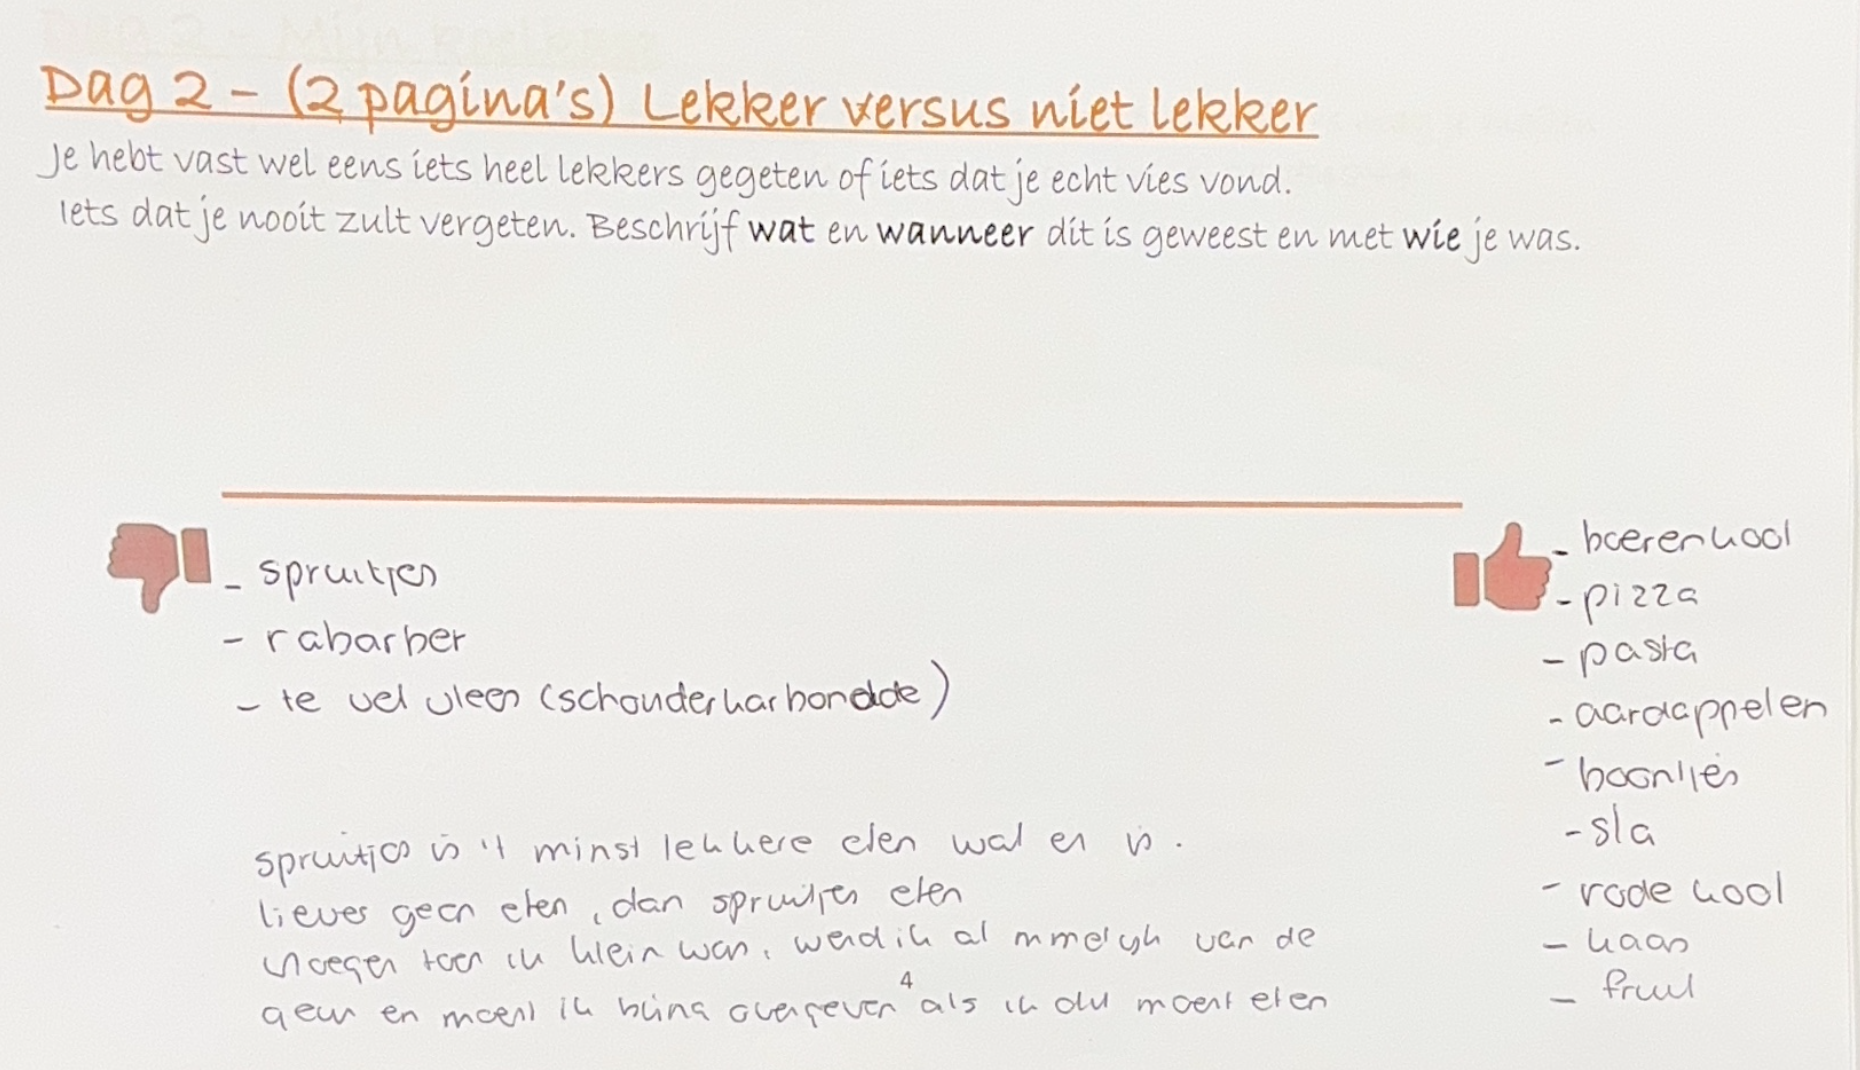 Dag 2 - (2 pagina's) Lekker versus niet lekker
Je hebt vast wel eens iets heel lekkers gegeten of iets dat je echt vies vond.
Iets dat je nooit zult vergeten. Beschrijf wat en wanneer dit is geweest en met wie je was.
- spruitjes
- rabarber
- te vel vlees (schouderkarbonade)
spruitjes is 't minst lekkere eten wat er is.
lieves geen eten, dan spruitjes eten
vroeger toen ik klein was, werd ik al van de
geur en moest ik bijna overgeven als ik dit moest eten
4
- boerenkool
- pizza
- pasta
- aardappelen
- boontjes
- sla
- rode kool
- kaas
- fruit